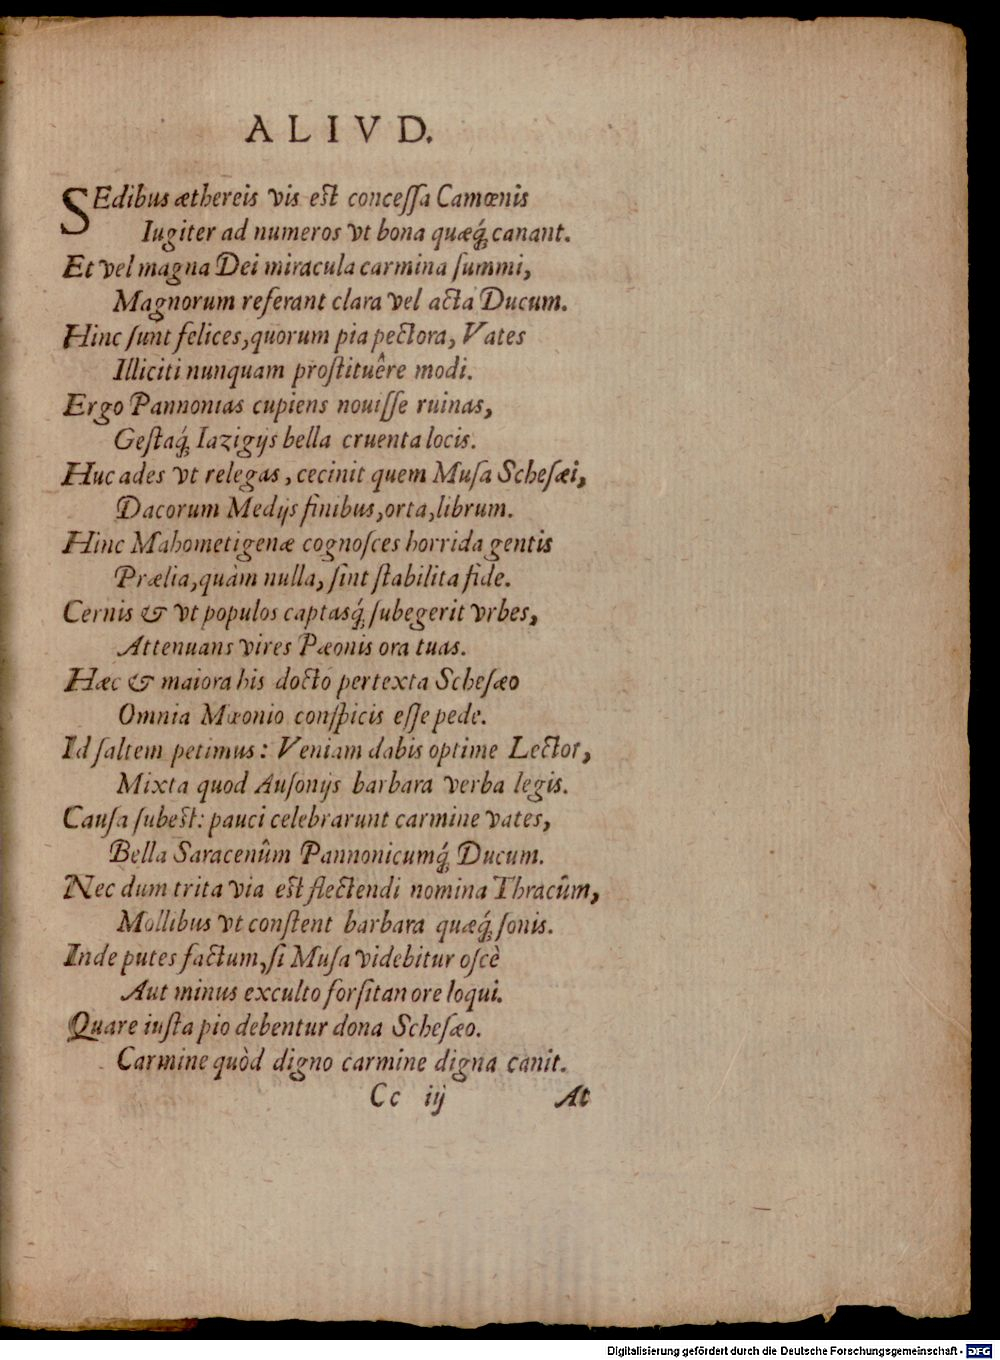 ALIVD.
SEdibus æthereis vis est concessa Camœnis
Iugiter ad numeros vt bona quæq́; canant.
Et vel magna Dei miracula carmina summi,
Magnorum referant clara vel acta Ducum.
Hinc sunt felices, quorum pia pectora, Vates
Illiciti nunquam prostituêre modi.
Ergo Pannonias cupiens nouisse ruinas,
Gestaq́; Iazigijs bella cruenta locis.
Huc ades vt relegas, cecinit quem Musa Schesæi,
Dacorum Medijs finibus, orta, librum.
Hinc Mahometigenæ cognosces horrida gentis
Prælia, quàm nulla, sint stabilita fide.
Cernis & vt populos captasq́; subegerit vrbes,
Attenuans vires Pæonis ora tuas.
Hæc & maiora his docto pertexta Schesæo
Omnia Mæonio conspicis esse pede.
Id saltem petimus: Veniam dabis optime Lector,
Mixta quod Ausonijs barbara verba legis.
Causa subest: pauci celebrarunt carmine vates,
Bella Saracenûm Pannonicumq́; Ducum.
Nec dum trita via est flectendi nomina Thracûm,
Mollibus vt constent barbara quæq́; sonis.
Inde putes factum, si Musa videbitur oscè
Aut minus exculto forsitan ore loqui.
Quare iusta pio debentur dona Schesæo.
Carmine quòd digno carmine digna canit.
Cc iij At
Digitalisierung gefördert durch die Deutsche Forschungsgemeinschaft - DFG